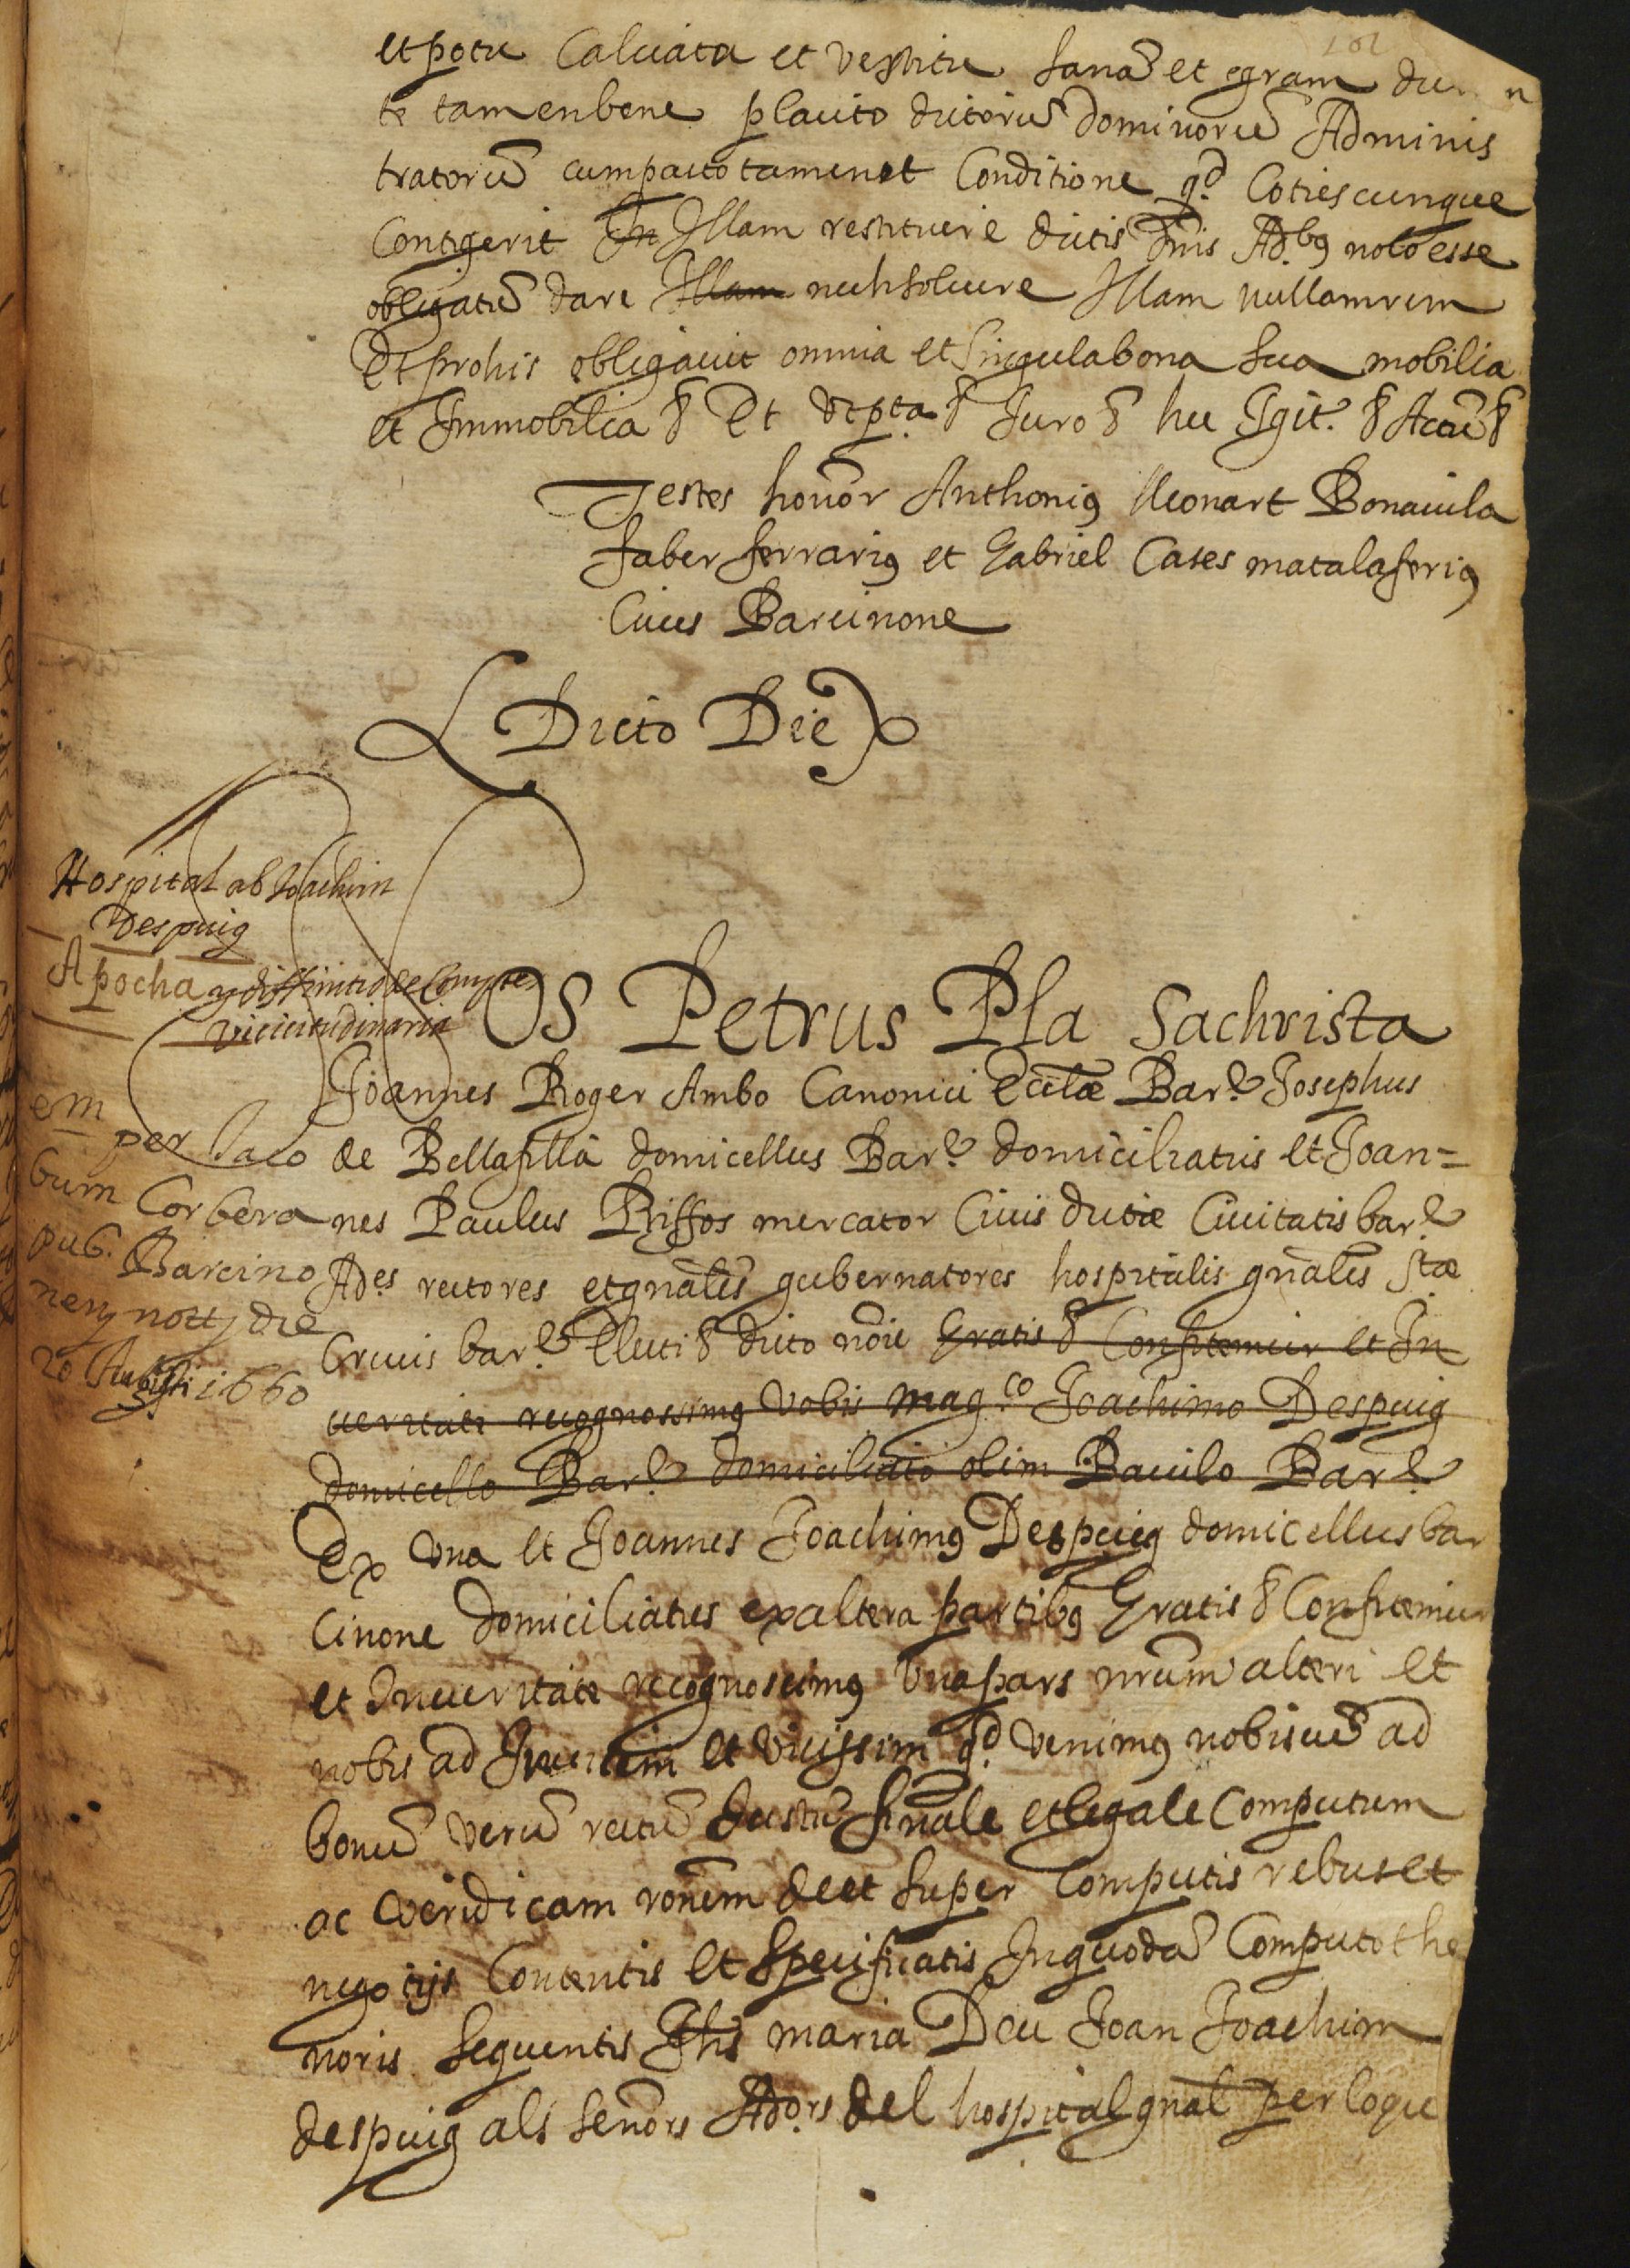 101
et potu Calciata et vestitu sana et egram duran
te tamen bene placito dictorũ dominorũ Adminis
tratorũ cum pacto tamen et Conditione qd Cotiescunque
Contigerit In Illam restituere dictis Dnis Ad.bꝰ nolo esse
obligatũ dare Illam neh soluere Illam nullam rem
Et pro his obligauit omnia et Singula bona sua mobilia
et Immobilia & Et vt pta & Juro & hec Igit. & Actũ &
Testes honor Anthoniꝰ Meonart Bonauila
faber ferrariꝰ et Gabriel Cases matalaferiꝰ
Ciues Barcinone
Dicto Die
Hospital ab Joachim
Despuig
Apocha y diffinitio de Comptes
Vicicitudinaria
em per Jaco
bum Corbera
pub. Barcino
neꝰ nott die
20 Augusti 1660
OS Petrus Pla Sachrista
Joannes Roger Ambo Canonici Eccłæ Bar.e Josephus
de Bellafilla domicellus Bar.e domiciliatus et Joan=
nes Paulus Riffos mercator Ciuis dictæ Ciuitatis bar.e
Ades rectores et gnales gubernatores hospitalis gnalis Stæ
Crucis bar.e Electi & dicto nõie Gratis & Confitemur et In
ueritate recognossimꝰ vobis mag.co Joachimo Despuig
domicello Bar.e domiciliato olim Baiulo Bar.e
Ex vna et Joannes Joachimꝰ Despuig domicellus bar
cinone domiciliatus ex altera partibꝰ Gratis & Confitemur
et In ueritate recognoscimꝰ vna pars nrum alteri et
nobis ad Inuicem et vicissim qd venimꝰ nobiscũ ad
bonũ verũ rectũ Justũ finale et legale Computum
ac veridicam ronem de et super Computis rebus et
negotijs Contentis et Specificatis In quodã Computo the
noris sequentis Jhs maria Deu Joan Joachim
despuig als Señors Ad.ors del hospital gnal per lo que